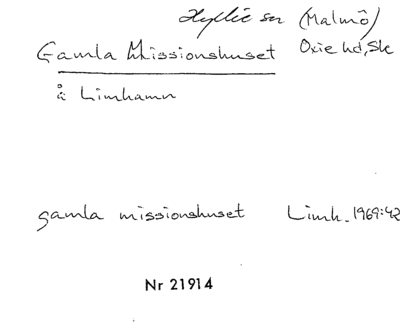 Hyllie sn (Malmö)
Gamla Missionshuset Oxie hd, Sk
å Limhamn
gamla missionshuset Limh. 1969:42
Nr 21914